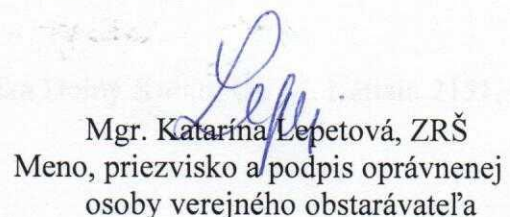 Mgr. Katarína Lepetová, ZRŠ
Meno, priezvisko a podpis oprávnenej
osoby verejného obstarávateľa